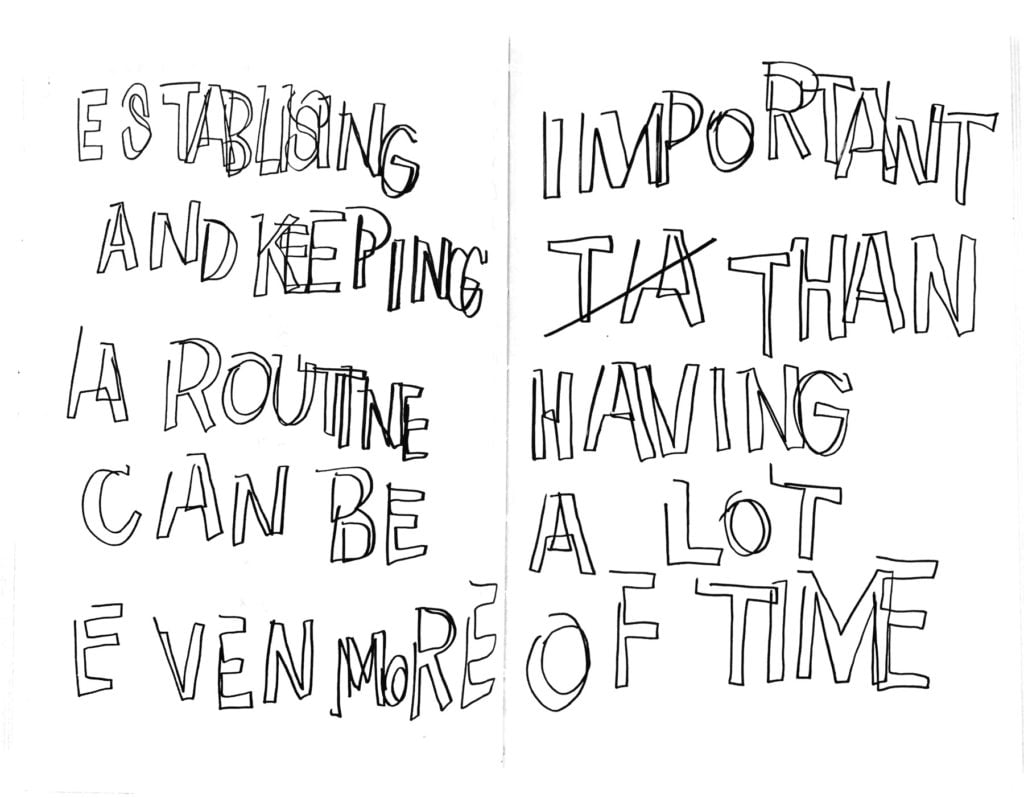 ESTABLISING
AND KEEPING
A ROUTINE
CAN BE
EVEN MORE
IMPORTANT
TA THAN
HAVING
A LOT
OF TIME